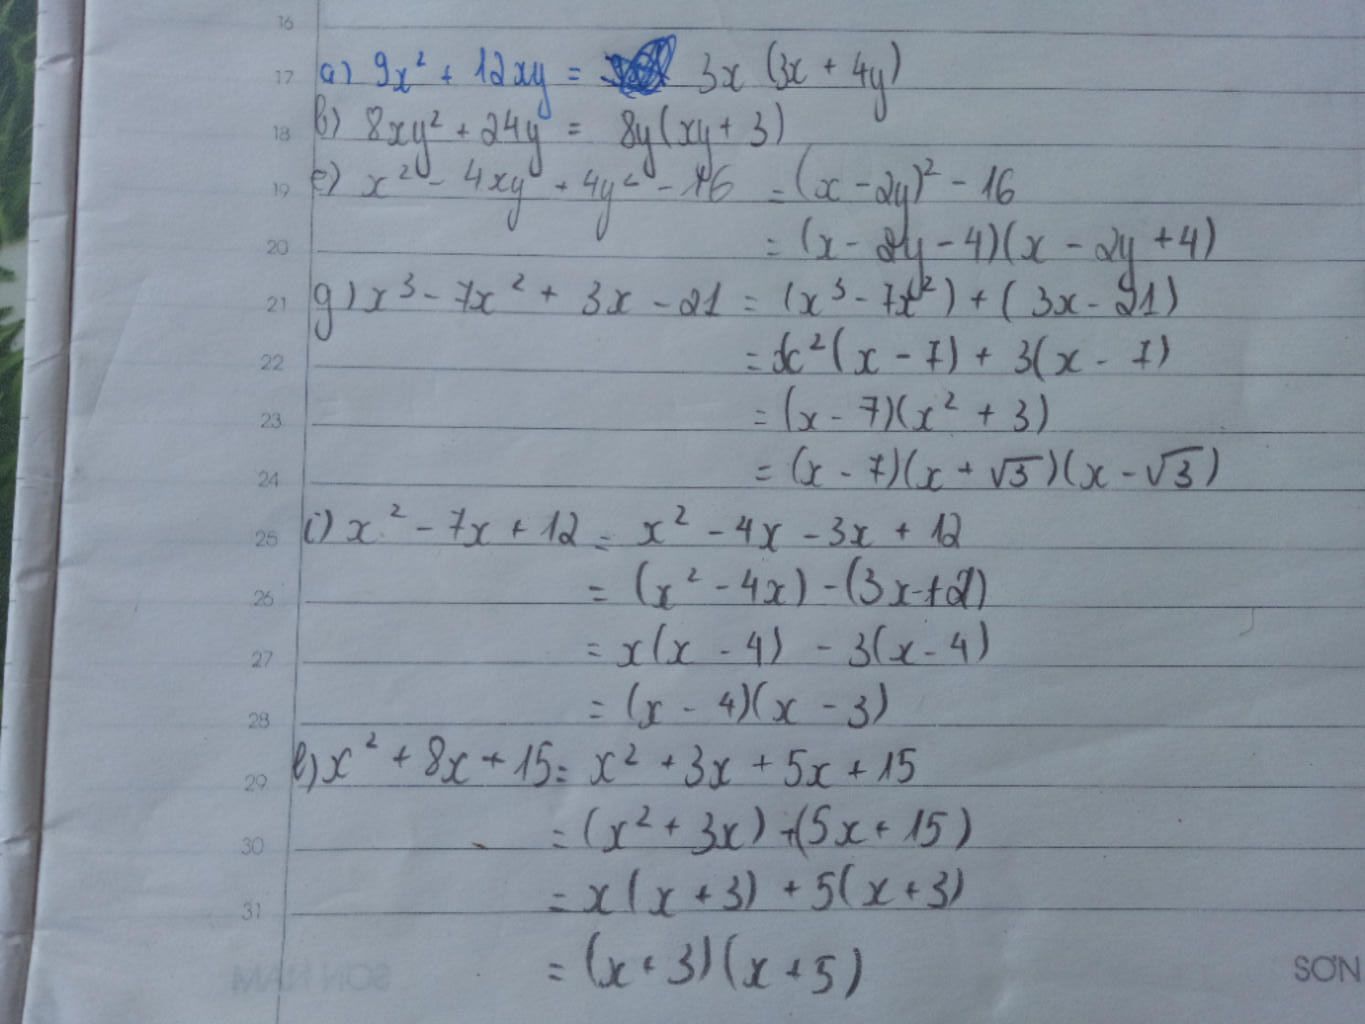 16
17 a) 9x² + 12xy = 3x (3x + 4y)
18 b) 8xy² + 24y = 8y(xy + 3)
19 e) x² - 4xy + 4y² - 16 = (x - 2y)² - 16
20 = (x - 2y - 4)(x - 2y + 4)
21 g) x³ - 7x² + 3x - 21 = (x³ - 7x²) + (3x - 21)
22 = x²(x - 7) + 3(x - 7)
23 = (x - 7)(x² + 3)
24 = (x - 7)(x + √3)(x - √3)
25 i) x² - 7x + 12 = x² - 4x - 3x + 12
26 = (x² - 4x) - (3x + 2)
27 = x(x - 4) - 3(x - 4)
28 = (x - 4)(x - 3)
29 l) x² + 8x + 15 = x² + 3x + 5x + 15
30 = (x² + 3x) + (5x + 15)
31 = x(x + 3) + 5(x + 3)
= (x + 3)(x + 5)
SƠN